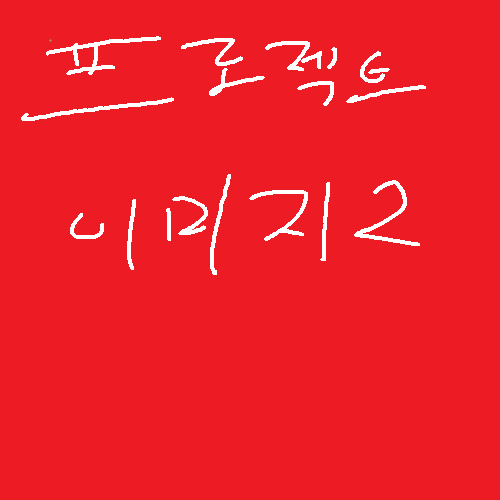 프로젝트
이미지2